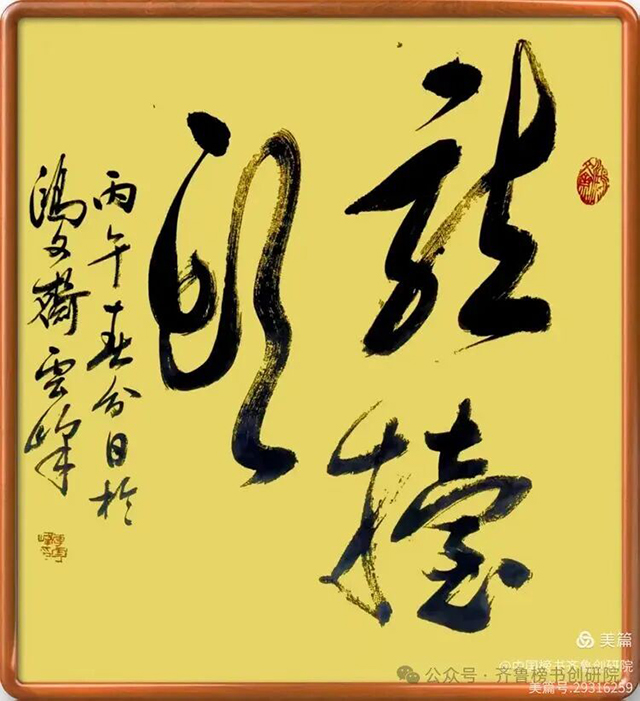 龍擡
頭
丙午春分日於
鴻文齋雲峰
美篇
@中国榜书齐鲁创研院
公众号·齐鲁榜书创研院
美篇号:29316259